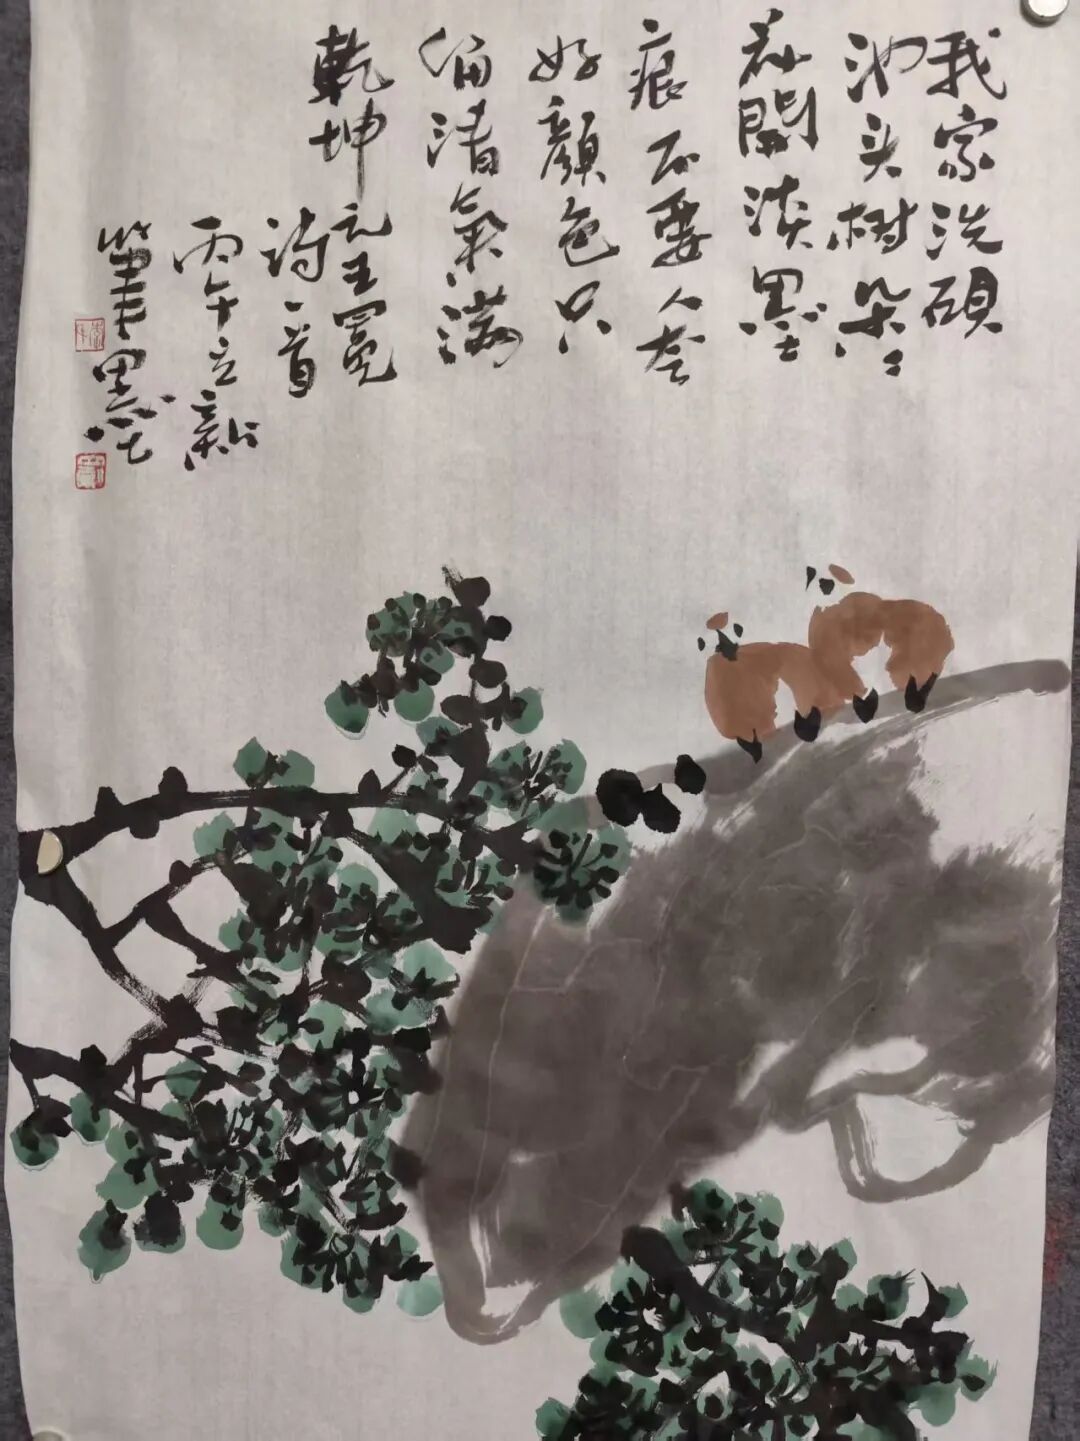 我家洗砚
池头树朵朵
花開淡墨
痕不要人夸
好顔色只
留清氣满
乾坤元王冕
诗一首
丙午立新
笔墨